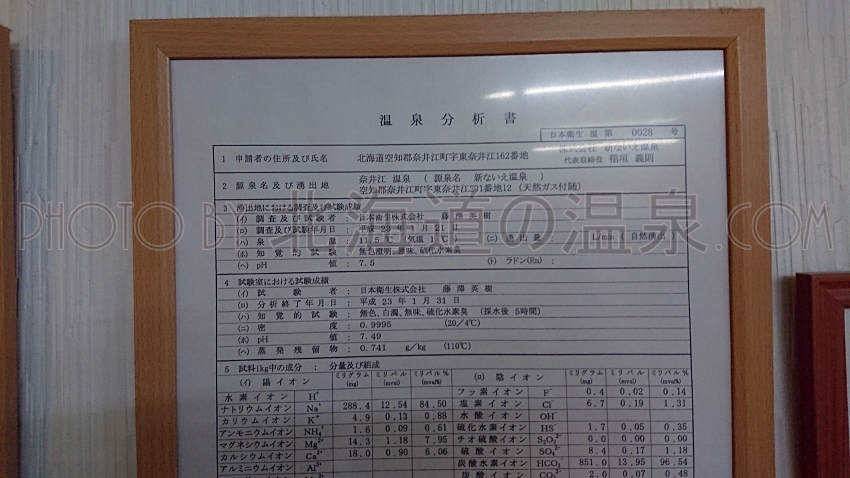 温泉分析書
日本衛生 温 第 0028 号
1 申請者の住所及び氏名 北海道空知郡奈井江町字東奈井江162番地 株式会社 新ないえ温泉
代表取締役 稲垣 義則
2 源泉名及び湧出地 奈井江 温泉 ( 源泉名 新ないえ温泉 )
空知郡奈井江町字東奈井江291番地12 (天然ガス付随)
3 湧出地における調査及び試験成績
(イ) 調査及び試験者 : 日本衛生株式会社 藤澤英樹
(ロ) 調査及び試験年月日 : 平成 23年 1月 21日
(ハ) 泉温 : 11.5℃ (気温 1℃) (ニ) 湧出量 : L/min (自然湧出)
(ホ) 知覚的試験 : 無色澄明、無味、硫化水素臭
(ヘ) pH値 : 7.5 (ト) ラドン(Rn) :
4 試験室における試験成績
(イ) 試験者 : 日本衛生株式会社 藤澤英樹
(ロ) 分析終了年月日 : 平成 23年 1月 31日
(ハ) 知覚的試験 : 無色、白濁、無味、硫化水素臭 (採水後 5時間)
(ニ) 密度 : 0.9995 (20/4℃)
(ホ) pH値 : 7.49
(ヘ) 蒸発残留物 : 0.741 g/kg (110℃)
5 試料1kg中の成分 : 分量及び組成
(イ) 陽イオン ミリグラム (mg) ミリバル (mval) ミリバル% (mval%) (ロ) 陰イオン ミリグラム (mg) ミリバル (mval) ミリバル% (mval%)
水素イオン H⁺ フッ素イオン F⁻ 0.4 0.02 0.14
ナトリウムイオン Na⁺ 288.4 12.54 84.50 塩素イオン Cl⁻ 6.7 0.19 1.31
カリウムイオン K⁺ 4.9 0.13 0.88 水酸イオン OH⁻
アンモニウムイオン NH₄⁺ 1.6 0.09 0.61 硫化水素イオン HS⁻ 1.7 0.05 0.35
マグネシウムイオン Mg²⁺ 14.3 1.18 7.95 チオ硫酸イオン S₂O₃²⁻ 0.0 0.00 0.00
カルシウムイオン Ca²⁺ 18.0 0.90 6.06 硫酸イオン SO₄²⁻ 8.4 0.17 1.18
アルミニウムイオン Al³⁺ 炭酸水素イオン HCO₃⁻ 851.0 13.95 96.54
炭酸イオン CO₃²⁻ 2.0 0.07 0.48
PHOTO BY 北海道の温泉.com